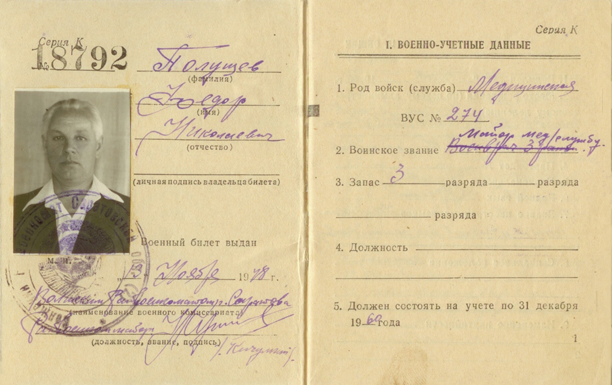 Серия К
№ 18792
Полущев
(фамилия)
Федор
(имя)
Николаевич
(отчество)
(личная подпись владельца билета)
Военный билет выдан
Ноября 1948 г.
Волжский Райвоенкомат гор. Саратова
(наименование военного комиссариата)
(должность, звание, подпись)
Серия К
I. ВОЕННО-УЧЕТНЫЕ ДАННЫЕ
1. Род войск (служба) Медицинская
ВУС № 274
майор мед/службы
2. Воинское звание Военврач 3 ранга
3. Запас 3 разряда разряда
разряда
4. Должность
5. Должен состоять на учете по 31 декабря
1960 года
1